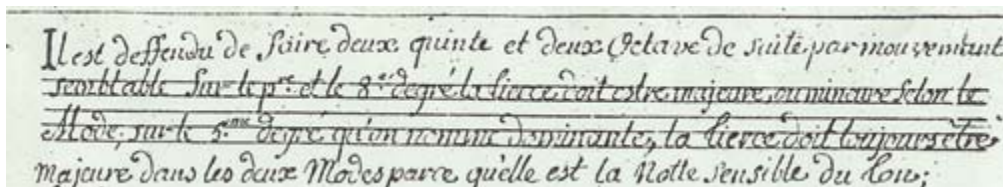 Il est deffendu de faire deux quinte et deux Octave de suite par mouvemant
semblable Sur le p.re et le 8.e degré la tierce doit estre majeure, ou mineure Selon le
Mode, sur le 5.eme degré qu'on nomme dominante, la tierce doit toujours être
majeure dans les deux Modes parce qu'elle est la Notte sensible du ton;